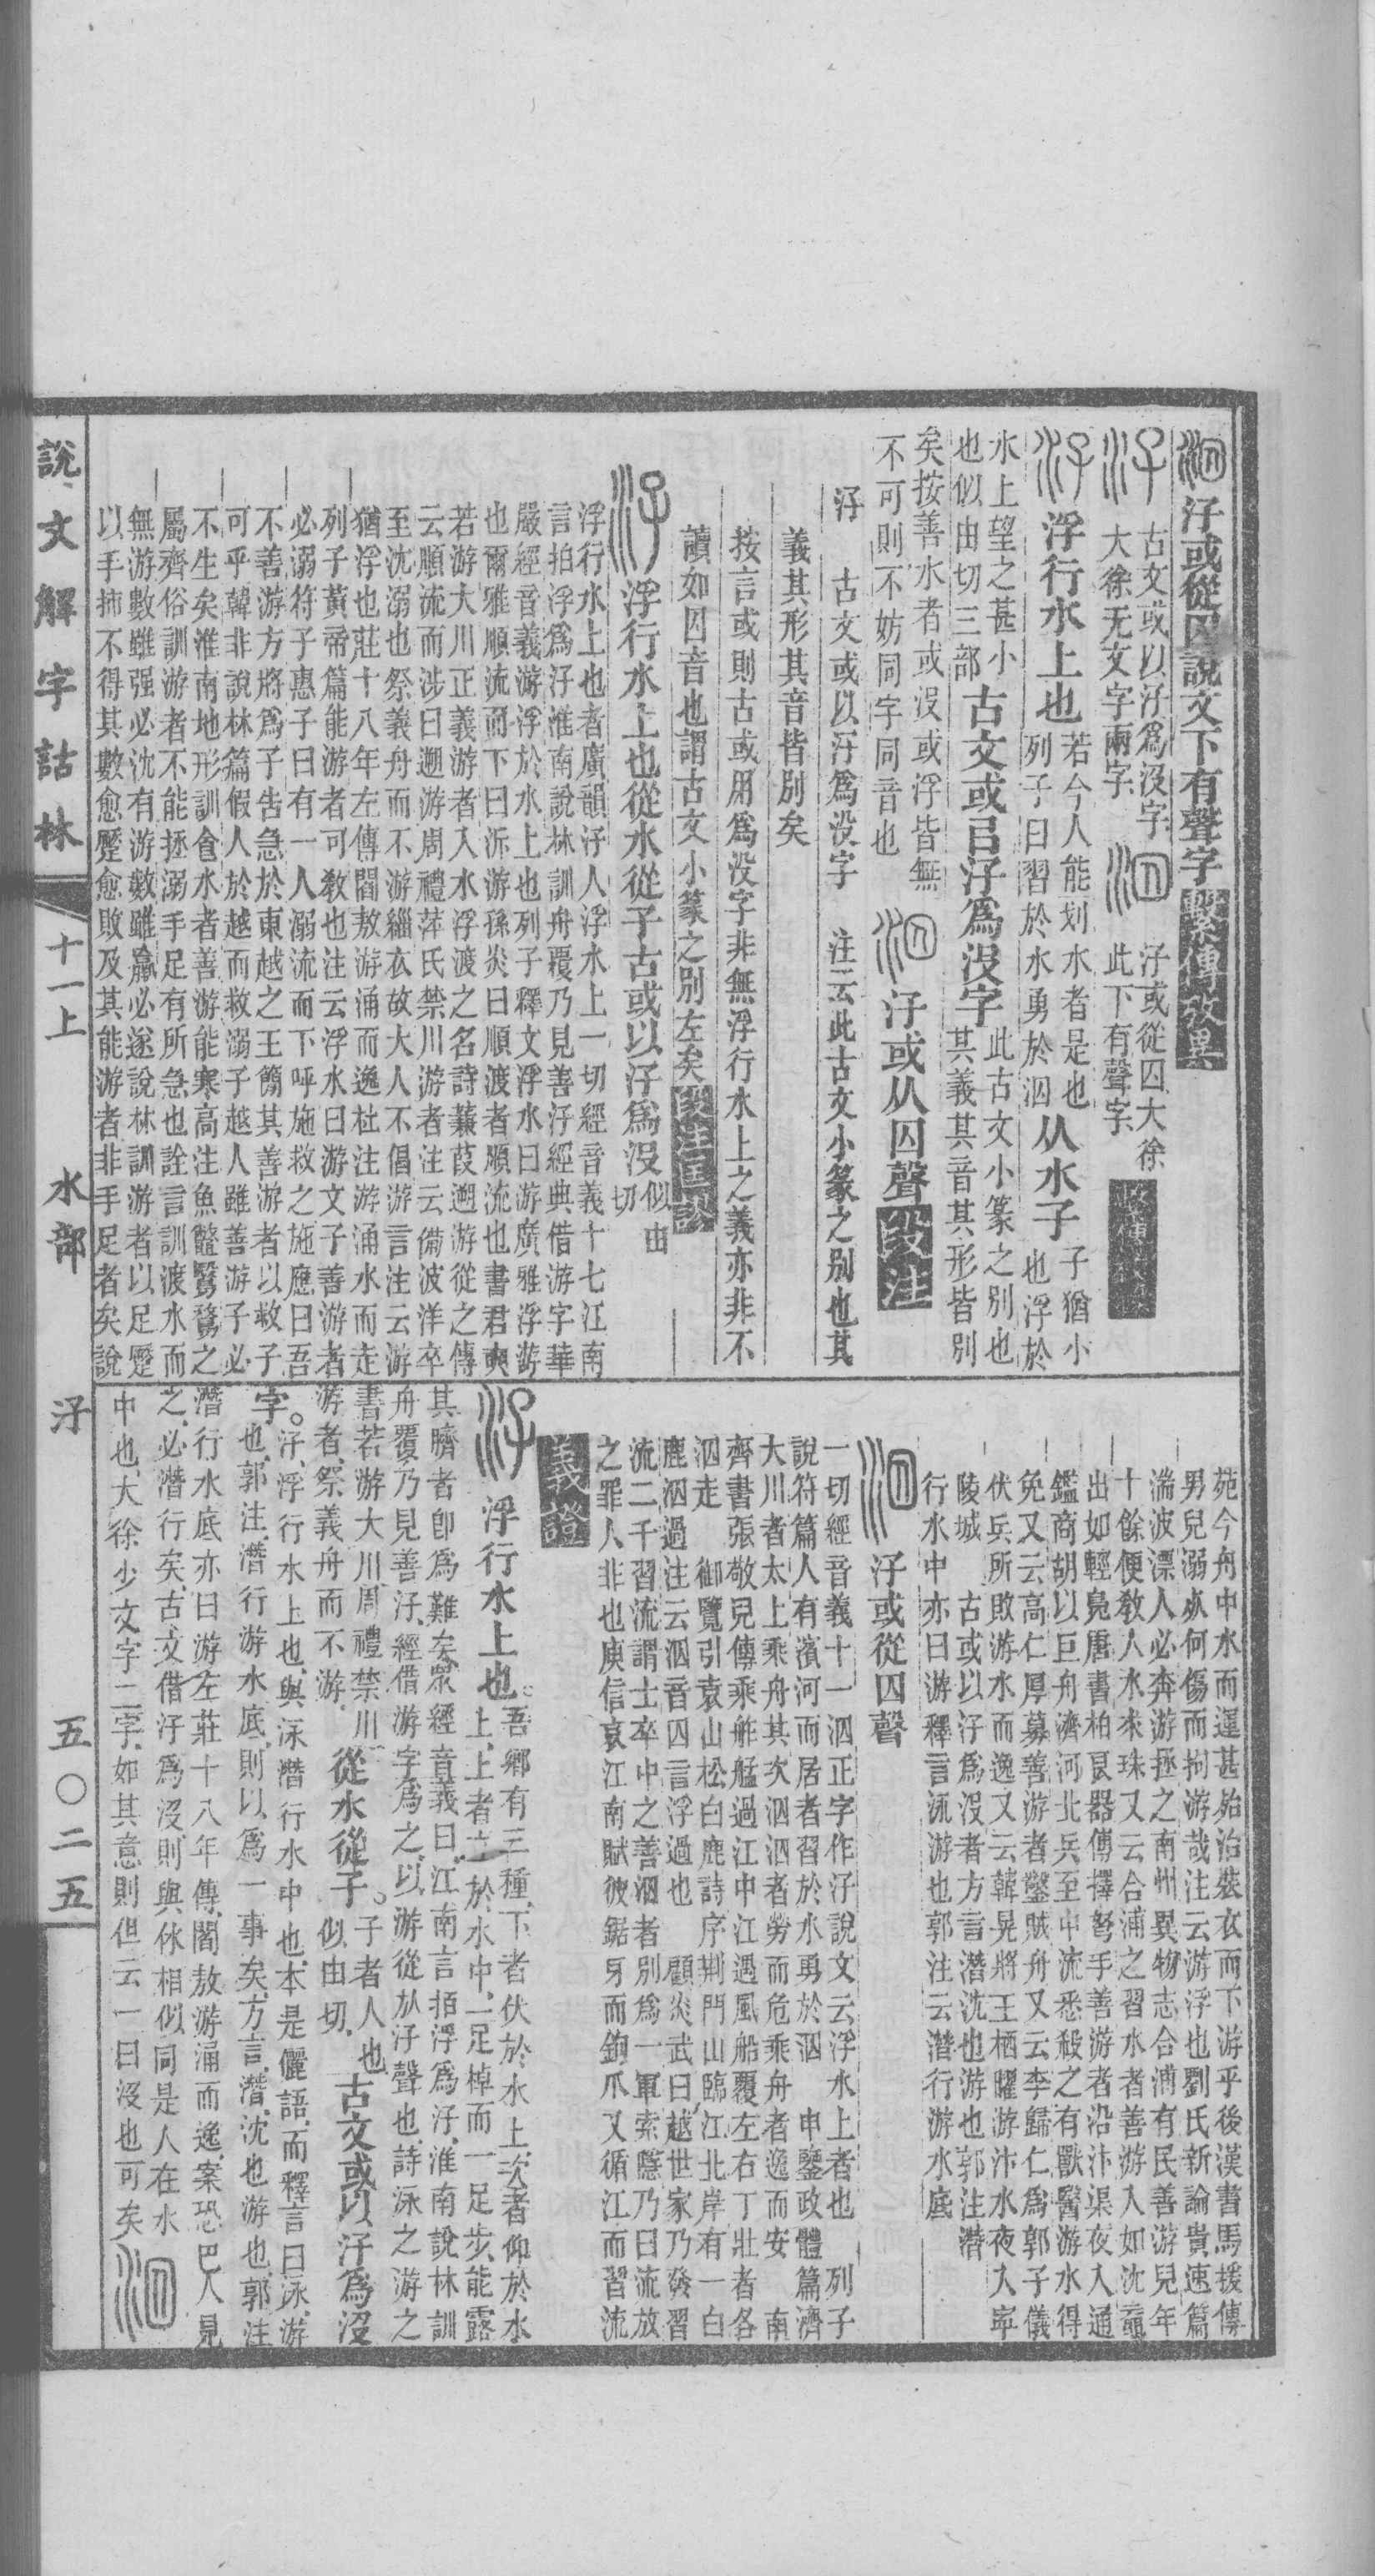 汓或從囚說文下有聲字繫傳攷異
古文或以汓爲沒字
大徐无文字兩字
汓或從囚大徐
此下有聲字
浮行水上也
若今人能划水者是也
列子曰習於水勇於泅
从水子
子猶小
也浮於
水上望之甚小
也似由切三部
古文或㠯汓爲沒字
此古文小篆之別也
其義其音其形皆別
矣按善水者或沒或浮皆無
不可則不妨同字同音也
汓或从囚聲段注
汓　古文或以汓爲沒字　注云此古文小篆之別也其
義其形其音皆別矣
按言或則古或用爲沒字非無浮行水上之義亦非不
讀如囚音也謂古文小篆之別左矣段注匡謬
浮行水上也從水從子古或以汓爲沒
似由
切
浮行水上也者廣韻汓人浮水上一切經音義十七江南
言拍浮爲汓淮南說林訓舟覆乃見善汓經典借游字華
嚴經音義游浮於水上也列子釋文浮水曰游廣雅浮游
也爾雅順流而下曰泝游孫炎曰順渡者順流也書君奭
若游大川正義游者入水浮渡之名詩蒹葭遡游從之傳
云順流而涉曰遡游周禮萍氏禁川游者注云備波洋卒
至沈溺也祭義舟而不游緇衣故大人不倡游言注云游
猶浮也莊十八年左傳閻敖游涌而逸杜注游涌水而走
列子黃帝篇能游者可敎也注云浮水曰游文子善游者
必溺符子惠子曰有一人溺流而下呼施救之施應曰吾
不善游方將爲子告急於東越之王簡其善游者以救子
可乎韓非說林篇假人於越而救溺子越人雖善游子必
不生矣淮南地形訓食水者善游能寒高注魚鼈鷖鶩之
屬齊俗訓游者不能拯溺手足有所急也詮言訓渡水而
無游數雖强必沈有游數雖羸必遂說林訓游者以足蹷
以手㧊不得其數愈蹷愈敗及其能游者非手足者矣說
苑今舟中水而運甚殆治裝衣而下游乎後漢書馬援傳
男兒溺死何傷而拘游哉注云游浮也劉氏新論貴速篇
湍波漂人必奔游拯之南州異物志合浦有民善游兒年
十餘便敎人水求珠又云合浦之習水者善游入如沈黿
出如輕鳧唐書柏良器傳擇弩手善游者沿汴渠夜入通
鑑商胡以巨舟濟河北兵至中流悉殺之有獸醫游水得
免又云高仁厚募善游者鑿賊舟又云李歸仁爲郭子儀
伏兵所敗游水而逸又云韓晃將王栖曜游汴水夜入寧
陵城　古或以汓爲沒者方言潛沈也游也郭注潛
行水中亦曰游釋言泳游也郭注云潛行游水底
汓或從囚聲
一切經音義十一泅正字作汓說文云浮水上者也　列子
說符篇人有濱河而居者習於水勇於泅　申鑒政體篇濟
大川者太上乘舟其次泅泅者勞而危乘舟者逸而安　南
齊書張敬兒傳乘舴艋過江中江遇風船覆左右丁壯者各
泅走　御覽引袁山松白鹿詩序荆門山臨江北岸有一白
鹿泅過注云泅音囚言浮過也　顧炎武曰越世家乃發習
流二千習流謂士卒中之善泅者別爲一軍索隱乃曰流放
之罪人非也庾信哀江南賦彼鋸牙而鉤爪又循江而習流
義證
浮行水上也。
吾鄉有三種下者伏於水上次者仰於水
上上者立於水中一足棹而一足步能露
其臍者卽爲難矣眾經音義曰江南言拍浮爲汓淮南說林訓
舟覆乃見善汓經借游字爲之以游從㫃汓聲也詩泳之游之
書若游大川周禮禁川
游者祭義舟而不游
從水從子。
子者人也
似由切
古文或以汓爲沒
字。
汓浮行水上也與泳潛行水中也本是儷語而釋言曰泳游
也郭注潛行游水底則以爲一事矣方言潛沈也游也郭注
潛行水底亦曰游左莊十八年傳閻敖游涌而逸案恐巴人見
之必潛行矣古文借汓爲沒則與休相似同是人在水
中也大徐少文字二字如其意則但云一曰沒也可矣
說文解字詁林　十一上　水部　汓　五〇二五